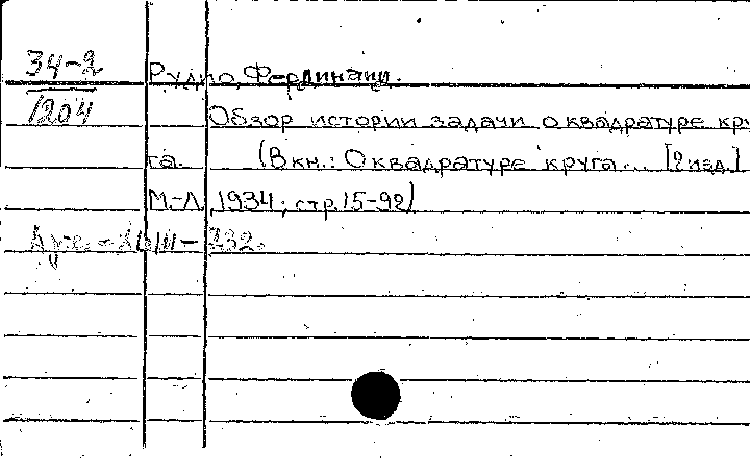 34-2
Рудио, Фердинанд.
1204
Обзор истории задачи о квадратуре кру
га. (В кн.: О квадратуре круга... [2 изд.]
М.-Л., 1934; стр. 15-92)
232.